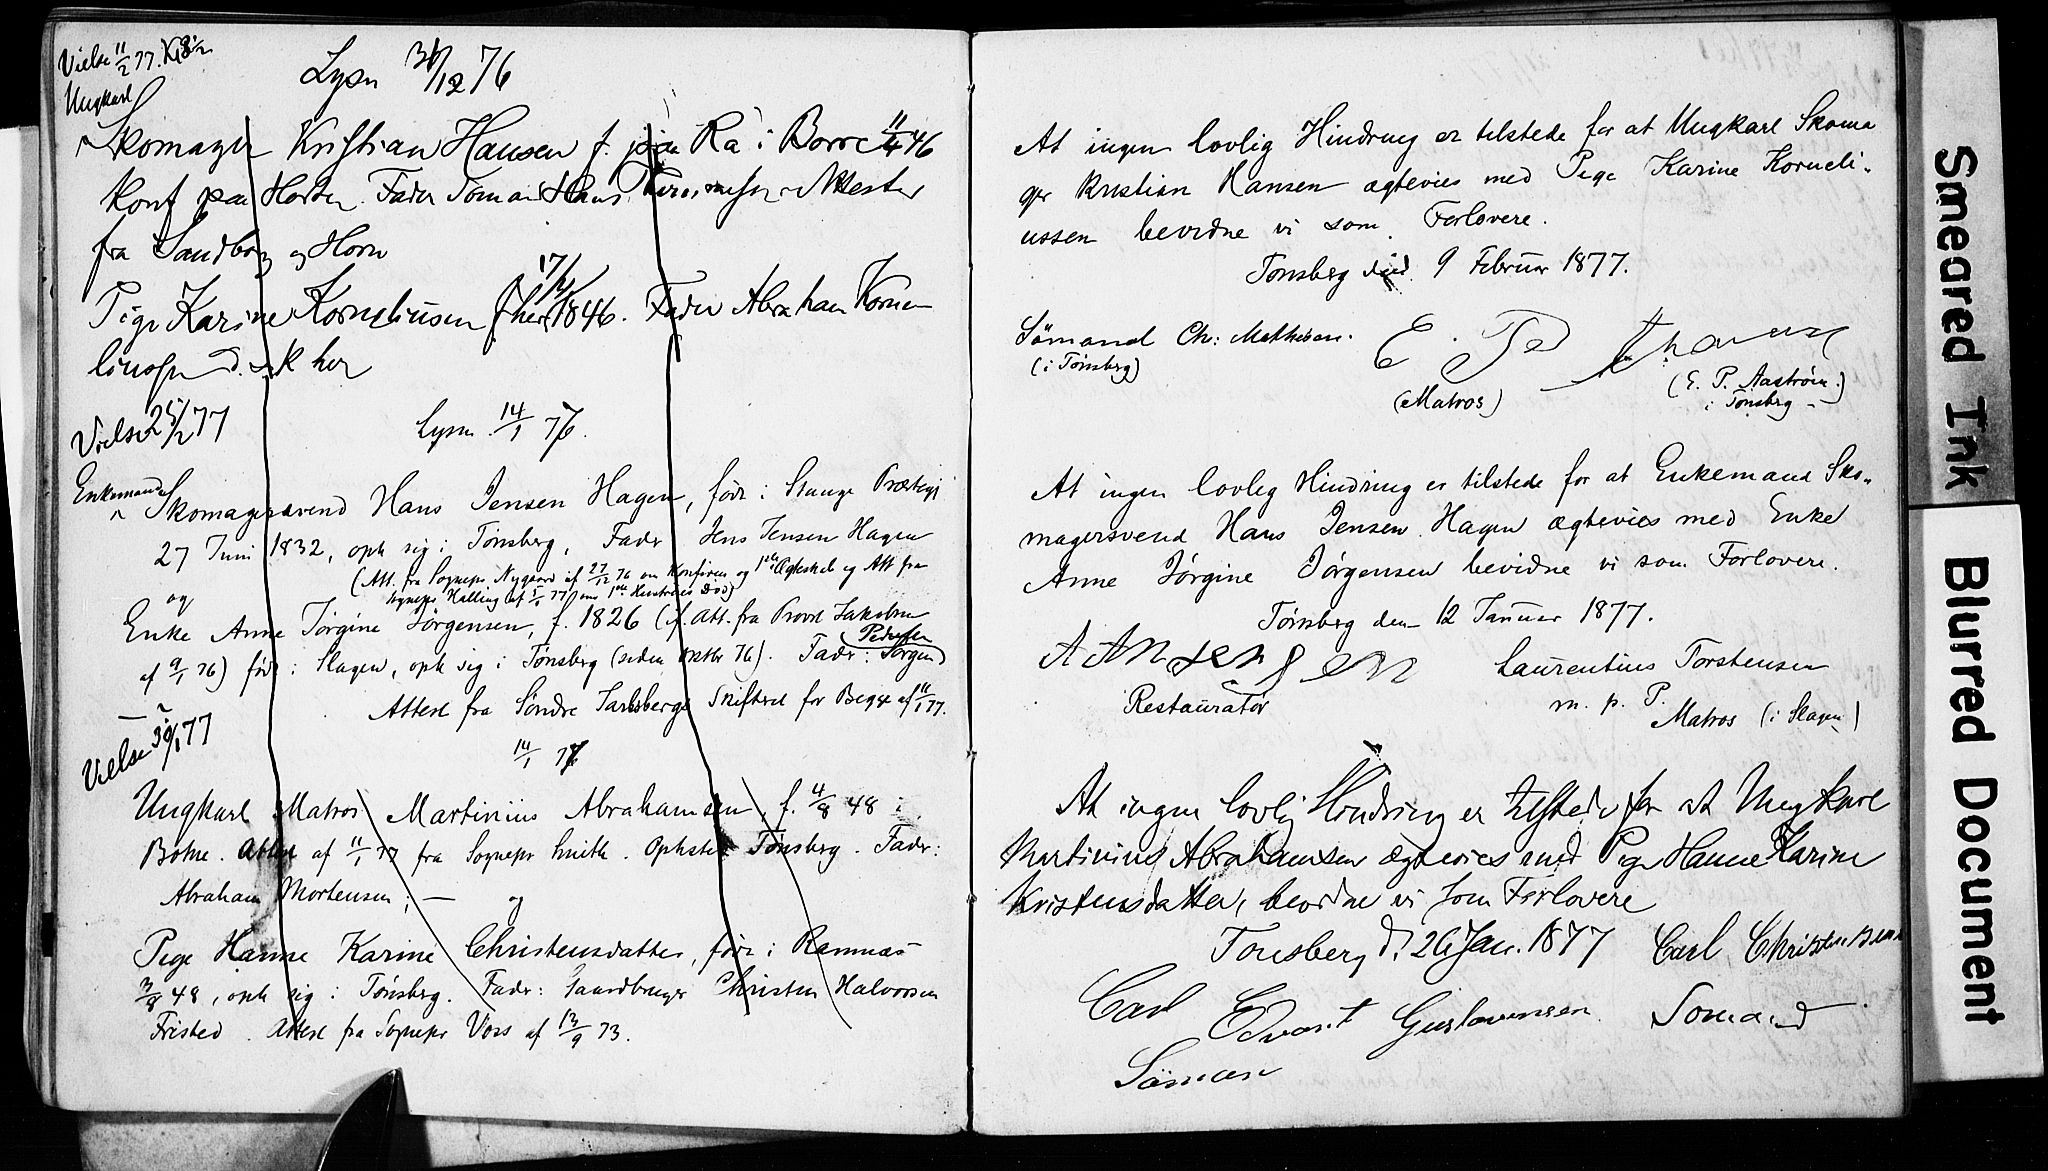 Vielse 11/2 77. Kl 8½
Lysn 31/12 76
Ungkarl
Skomager Kristian Hansen f. paa Ra i Borre 11/4 46
Konf paa Horten. Fader Tømmerm Hans Attester
fra Sandborg og Horn
Pige Karine Korneliusen f. her 17/4 1846. Fader Abraham Korne
liussen d. & k her
Vielse 25/2 77
Lysn. 14/1 77.
Enkemand
Skomagersvend Hans Jensen Hagen, født i Stange Præstegj
27 Juni 1832, oph sig i Tønsberg, Fader Jens Jensen Hagen
(Att. fra Sognepr. Nygaard af 27/12 76 om Konfirm og 1ste Ægteskab og Att fra
Sognepr Halling af 5/1 77 om 1ste Hustrues Død)
og
Enke Anne Jørgine Jørgensen, f. 1826 (cf. Att. fra Provst Jakobsen
af 9/1 76) født i Slagen, oph sig i Tønsberg (siden Oktbr 76). Fader: Jørgen
Pedersen
Attest fra Søndre Jarlsbergs Skifteret for Begge af 11/1 77.
Vielse 30/1 77
14/1 77
Ungkarl Matros Martinius Abrahamsen, f. 4/8 48 i
Botne. Attest af 11/1 77 fra Sognepr Smith. Opholdst Tønsberg. Fader:
Abraham Mortensen; — og
Pige Hanne Karine Christensdatter, født i Ramnæs
3/8 48, oph sig i Tønsberg. Fader: Gaardbruger Christen Halvorsen
Fristed. Attest fra Sognepr Voss af 13/9 73.
At ingen lovlig Hindring er tilstede for at Ungkarl Skoma
ger Kristian Hansen ægtevies med Pige Karine Korneli-
ussen bevidne vi som Forlovere.
Tønsberg den 9 Februar 1877.
Sömand Ch: Mathisen.
(i Tønsberg)
E. P.
(Matros)
(E. P. Aastrøm.)
i Tønsberg -
At ingen lovlig Hindring er tilstede for at Enkemand Sko-
magersvend Hans Jensen Hagen ægtevies med Enke
Anne Jørgine Jørgensen bevidne vi som Forlovere.
Tønsberg den 12 Januar 1877.
Restauratør
Laurentius Torstensen
m. p. P.
Matros (i Slagen)
At ingen lovlig Hindring er tilstede for at Ungkarl
Martinius Abrahamsen ægtevies med Pige Hanne Karine
Kristensdatter, bevidne vi som Forlovere
Tonsberg d. 26 Jan. 1877 Carl Christensen
Carl Edvart Gustavensen. Somand
Söman
Smeared Ink
Blurred Document